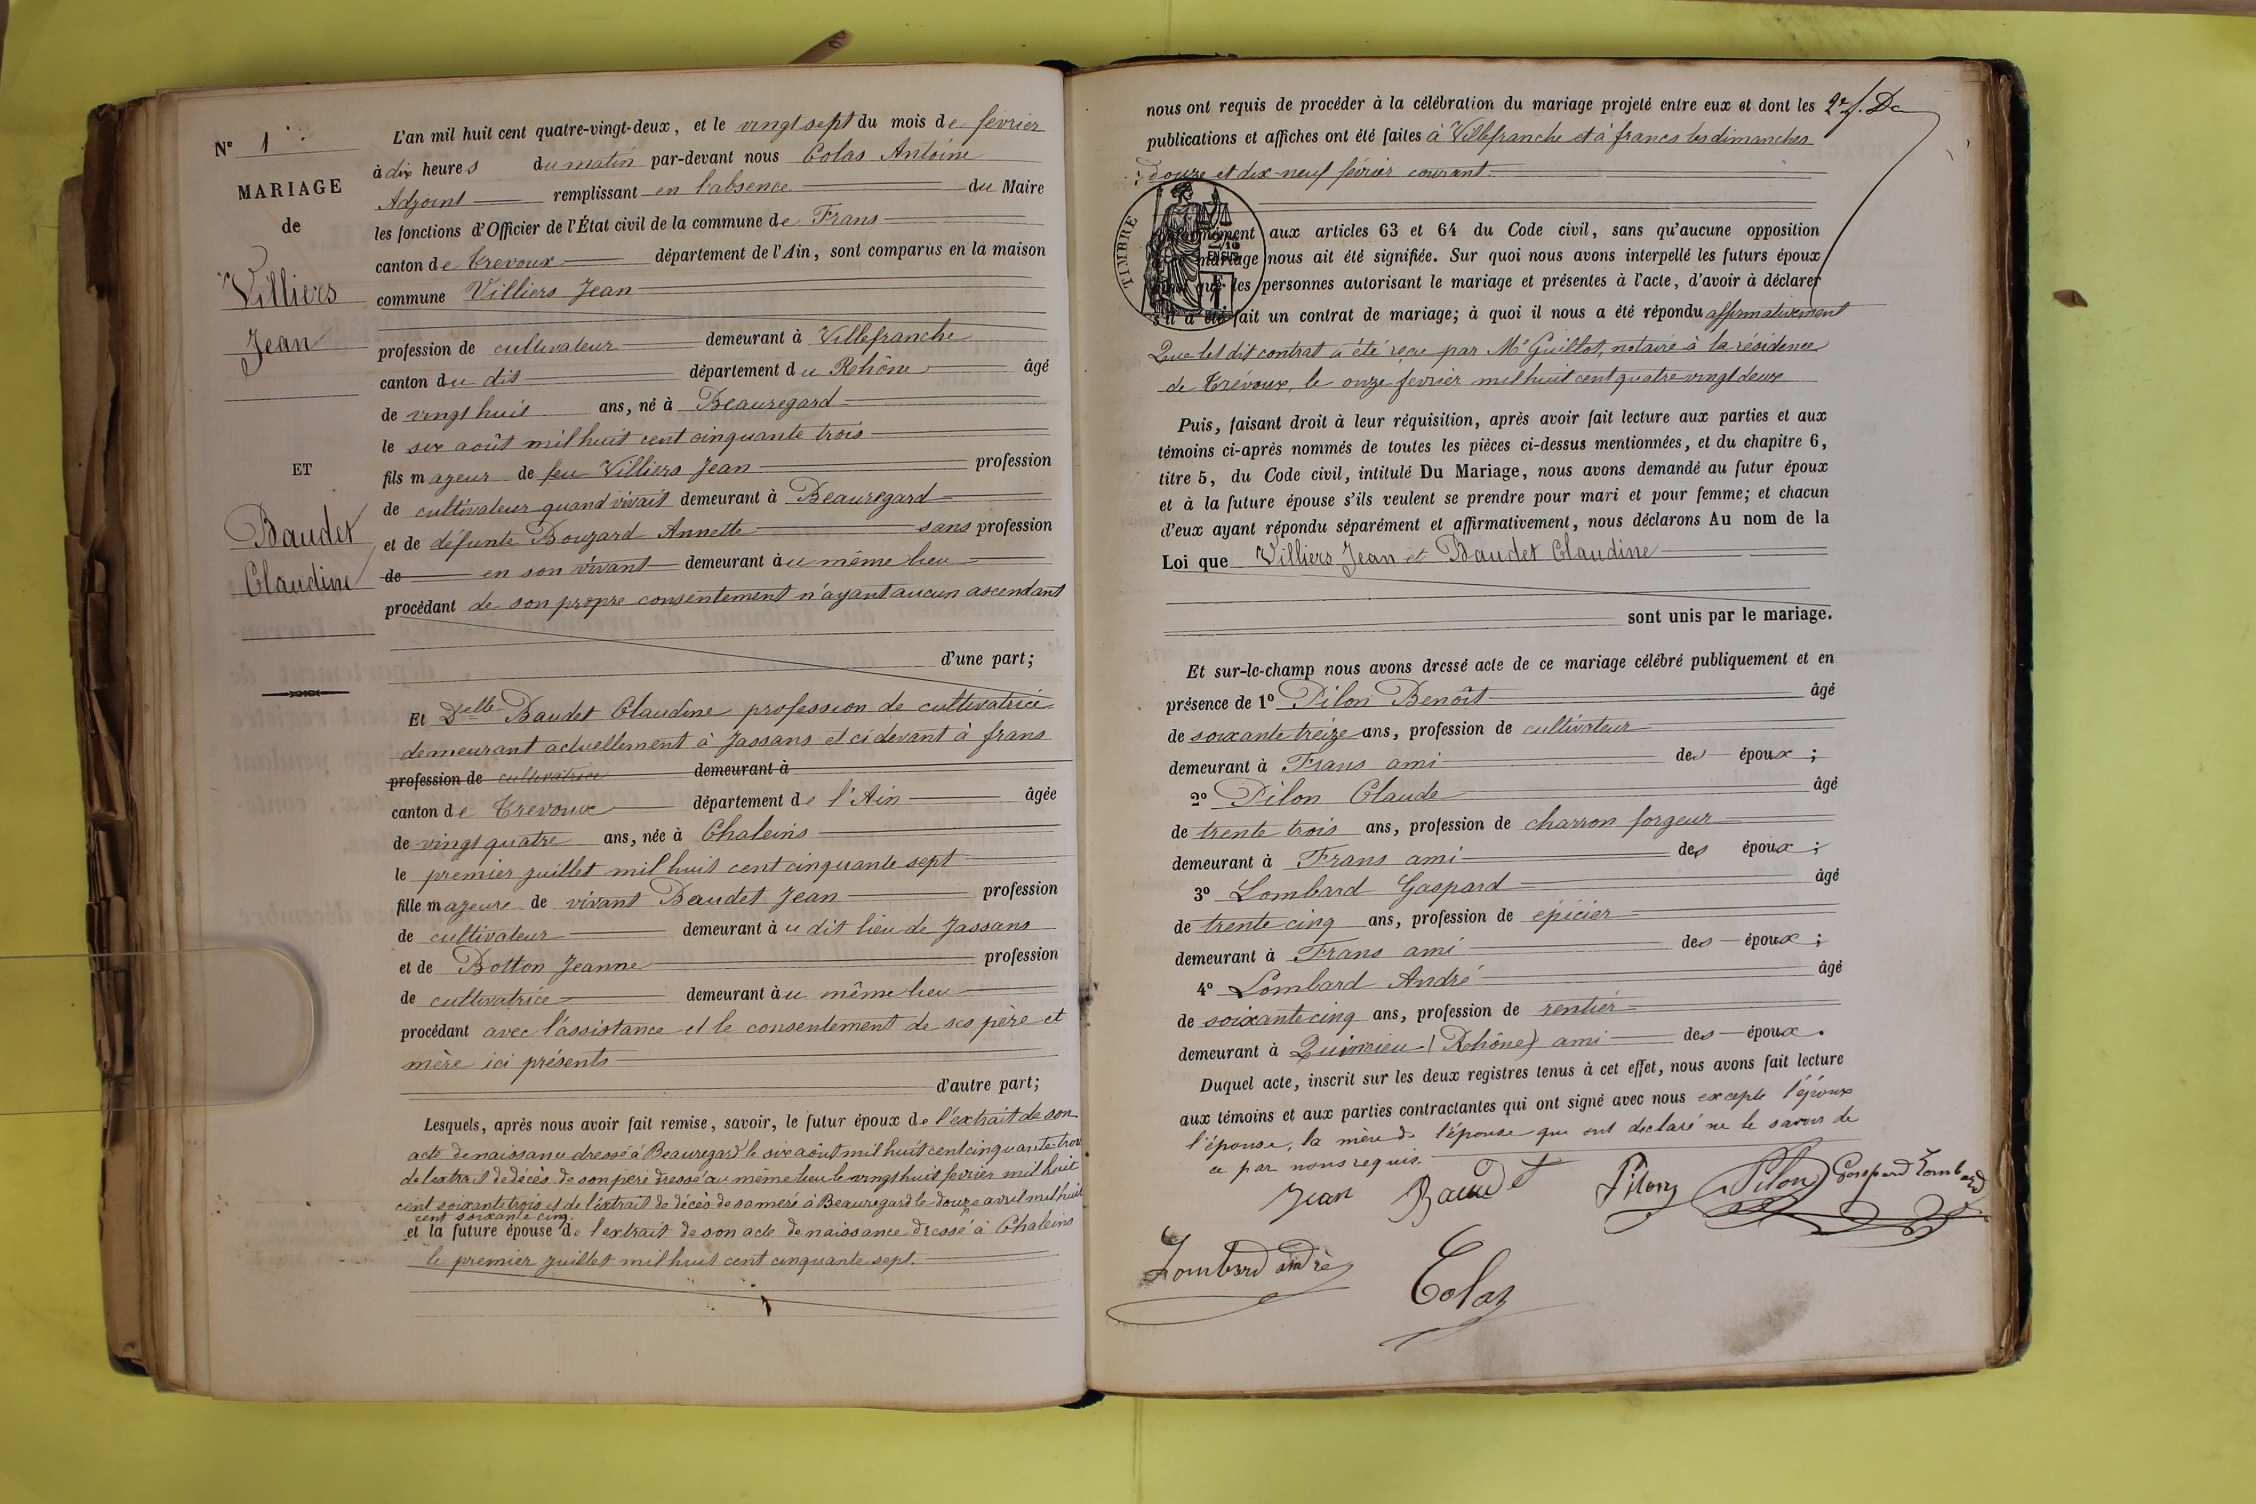 N° 1
MARIAGE
de
Villiers
Jean
ET
Baudet
Claudine
L'an mil huit cent quatre-vingt-deux, et le vingt sept du mois de février
à dix heures du matin par-devant nous Colas Antoine
Adjoint remplissant en l'absence du Maire
les fonctions d'Officier de l'État civil de la commune de Frans
canton de Trevoux département de l'Ain, sont comparus en la maison
commune Villiers Jean
profession de cultivateur demeurant à Villefranche
canton du dit département du Rhône âgé
de vingt huit ans, né à Beauregard
le six août mil huit cent cinquante trois
fils majeur de feu Villiers Jean profession
de cultivateur quand vivait demeurant à Beauregard
et de défunte Bouzard Annette sans profession
de en son vivant demeurant au même lieu
procédant de son propre consentement n'ayant aucun ascendant
d'une part;
Et Delle Baudet Claudine profession de cultivatrice
demeurant actuellement à Jassans et ci devant à frans
profession de cultivatrice demeurant à
canton de Trevoux département de l'Ain âgée
de vingt quatre ans, née à Chaleins
le premier juillet mil huit cent cinquante sept
fille majeure de vivant Baudet Jean profession
de cultivateur demeurant au dit lieu de Jassans
et de Botton Jeanne profession
de cultivatrice demeurant au même lieu
procédant avec l'assistance et le consentement de ses père et
mère ici présents
d'autre part;
Lesquels, après nous avoir fait remise, savoir, le futur époux de l'extrait de son
acte de naissance dressé à Beauregard le six août mil huit cent cinquante trois
de l'extrait de décès de son père dressé au même lieu le vingt huit fevrier mil huit
cent soixante trois et de l'extrait de décès de sa mère à Beauregard le douze avril mil huit
cent soixante cinq
et la future épouse de l'extrait de son acte de naissance dressé à Chaleins
le premier juillet mil huit cent cinquante sept.
nous ont requis de procéder à la célébration du mariage projeté entre eux et dont les
publications et affiches ont été faites à Villefranche et à francs les dimanches
douze et dix-neuf février courant.
TIMBRE
aux articles 63 et 64 du Code civil, sans qu'aucune opposition
mariage nous ait été signifiée. Sur quoi nous avons interpellé les futurs époux
que les personnes autorisant le mariage et présentes à l'acte, d'avoir à déclarer
s'il a été fait un contrat de mariage; à quoi il nous a été répondu affirmativement
Que le dit contrat a été reçu par Me Guillot, notaire à la résidence
de Trévoux, le onze fevrier mil huit cent quatre vingt deux
Puis, faisant droit à leur réquisition, après avoir fait lecture aux parties et aux
témoins ci-après nommés de toutes les pièces ci-dessus mentionnées, et du chapitre 6,
titre 5, du Code civil, intitulé Du Mariage, nous avons demandé au futur époux
et à la future épouse s'ils veulent se prendre pour mari et pour femme; et chacun
d'eux ayant répondu séparément et affirmativement, nous déclarons Au nom de la
Loi que Villiers Jean et Baudet Claudine
sont unis par le mariage.
Et sur-le-champ nous avons dressé acte de ce mariage célébré publiquement et en
présence de 1° Pilon Benoît âgé
de soixante treize ans, profession de cultivateur
demeurant à Frans ami des époux;
2° Pilon Claude âgé
de trente trois ans, profession de charron forgeur
demeurant à Frans ami des époux;
3° Lombard Gaspard âgé
de trente cinq ans, profession de épicier
demeurant à Frans ami des époux;
4° Lombard André âgé
de soixante cinq ans, profession de rentier
demeurant à Quincieu (Rhône) ami des époux.
Duquel acte, inscrit sur les deux registres tenus à cet effet, nous avons fait lecture
aux témoins et aux parties contractantes qui ont signé avec nous excepté l'époux
l'épouse, la mère de l'épouse qui ont declaré ne le savoir de
ce par nous requis.
Jean Baudet Pilon Pilon Gaspard Lombard
Lombard andrè
Colas